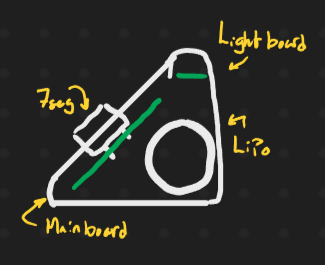 Light board
7seg
LiPo
Main board